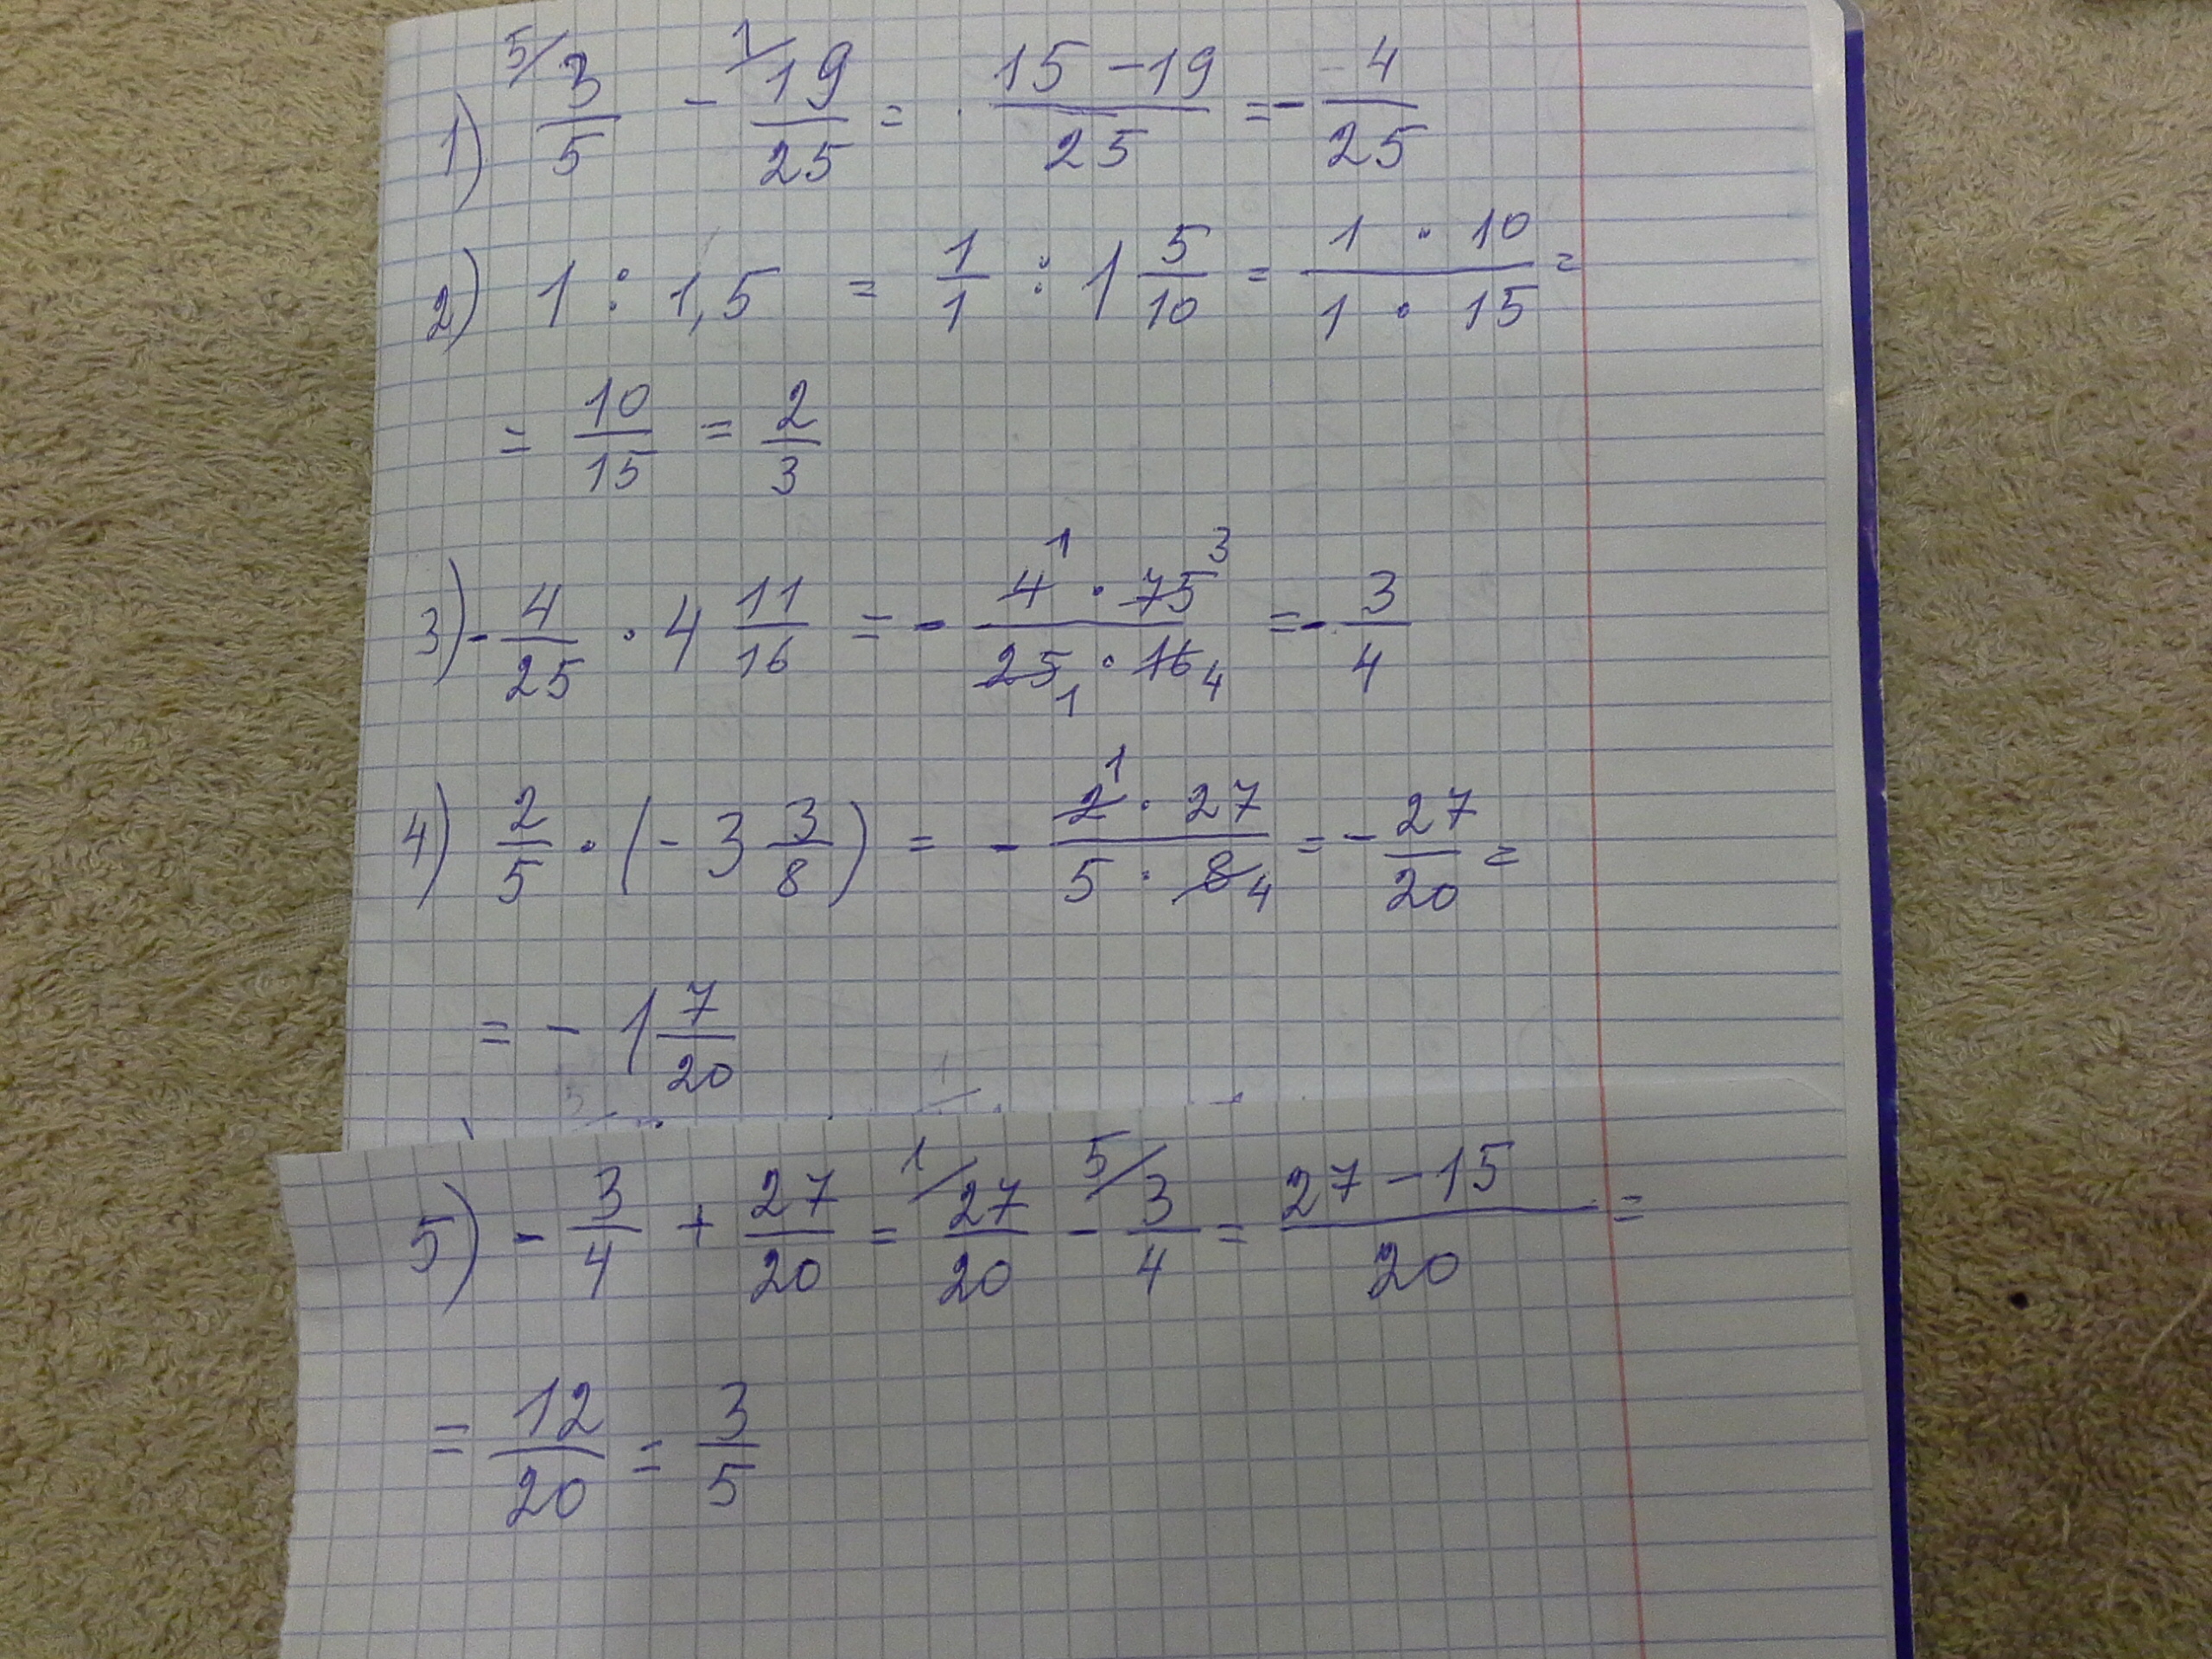 1) ⁵⁄ 3/5 - ¹⁄ 19/25 = 15-19/25 = - 4/25
2) 1 : 1,5 = 1/1 : 1 5/10 = 1 · 10/1 · 15 =
= 10/15 = 2/3
3) - 4/25 · 4 11/16 = - 4¹ · 75³/25₁ · 16₄ = - 3/4
4) 2/5 · (- 3 3/8) = - 2¹ · 27/5 · 8₄ = - 27/20 =
= - 1 7/20
5) - 3/4 + 27/20 = ¹⁄ 27/20 - ⁵⁄ 3/4 = 27-15/20 =
= 12/20 = 3/5